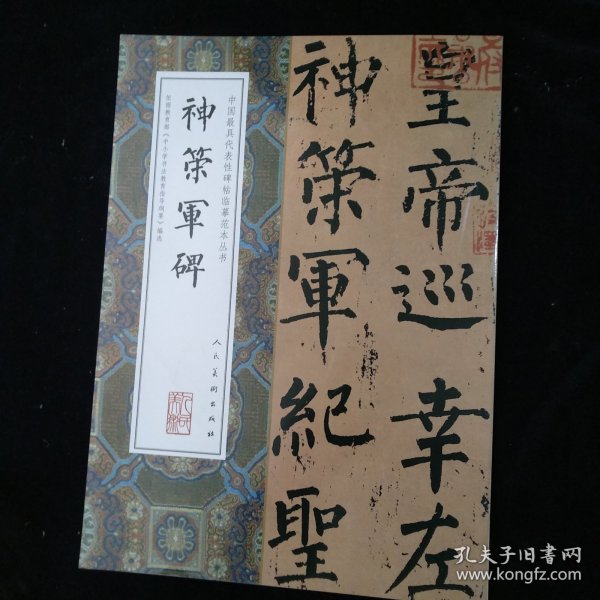 皇帝巡幸左
神策軍紀聖
中国最具代表性碑帖临摹范本丛书
神策軍碑
依据教育部《中小学书法教育指导纲要》编选
人民美術出版社
孔夫子旧书网
www.kongfz.com